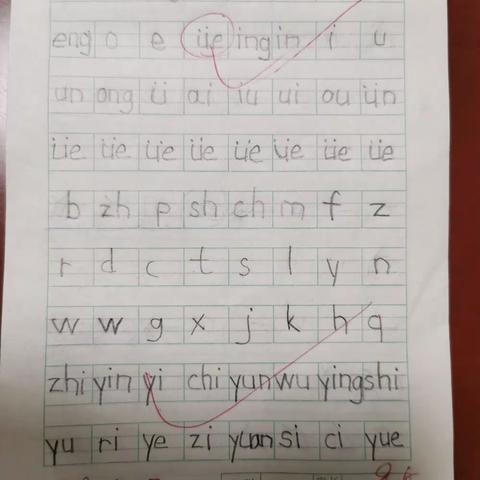 eng o e üe ing in i u
un ong ü ai iu ui ou ün
üe üe üe üe üe üe üe üe
b zh p sh ch m f z
r d c t s l y n
w w g x j k h q
zhi yin yi chi yun wu ying shi
yu ri ye zi yuan si ci yue